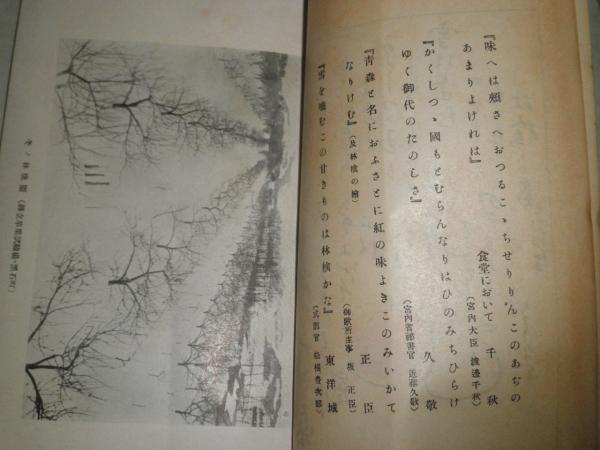 『味へは頰さへおつるこゝちせりりんこのあぢの
あまりよけれは』
食堂において 千秋
(宮內大臣 渡邊千秋)
『かくしつゝ國もとむらんなりはひのみちひらけ
ゆく御代のたのしさ』
久敬
(宮內省祕書官 近藤久敬)
『靑森と名におふさとに紅の味よきこのみいかて
なりけむ』(及林檎の繪)
正臣
(御歌所主事 坂正臣)
『雪を嚙むこの甘きものは林檎かな』
東洋城
(式部官 松根豊次郞)
冬ノ林檎園(縣立苹果試驗場・黑石町)